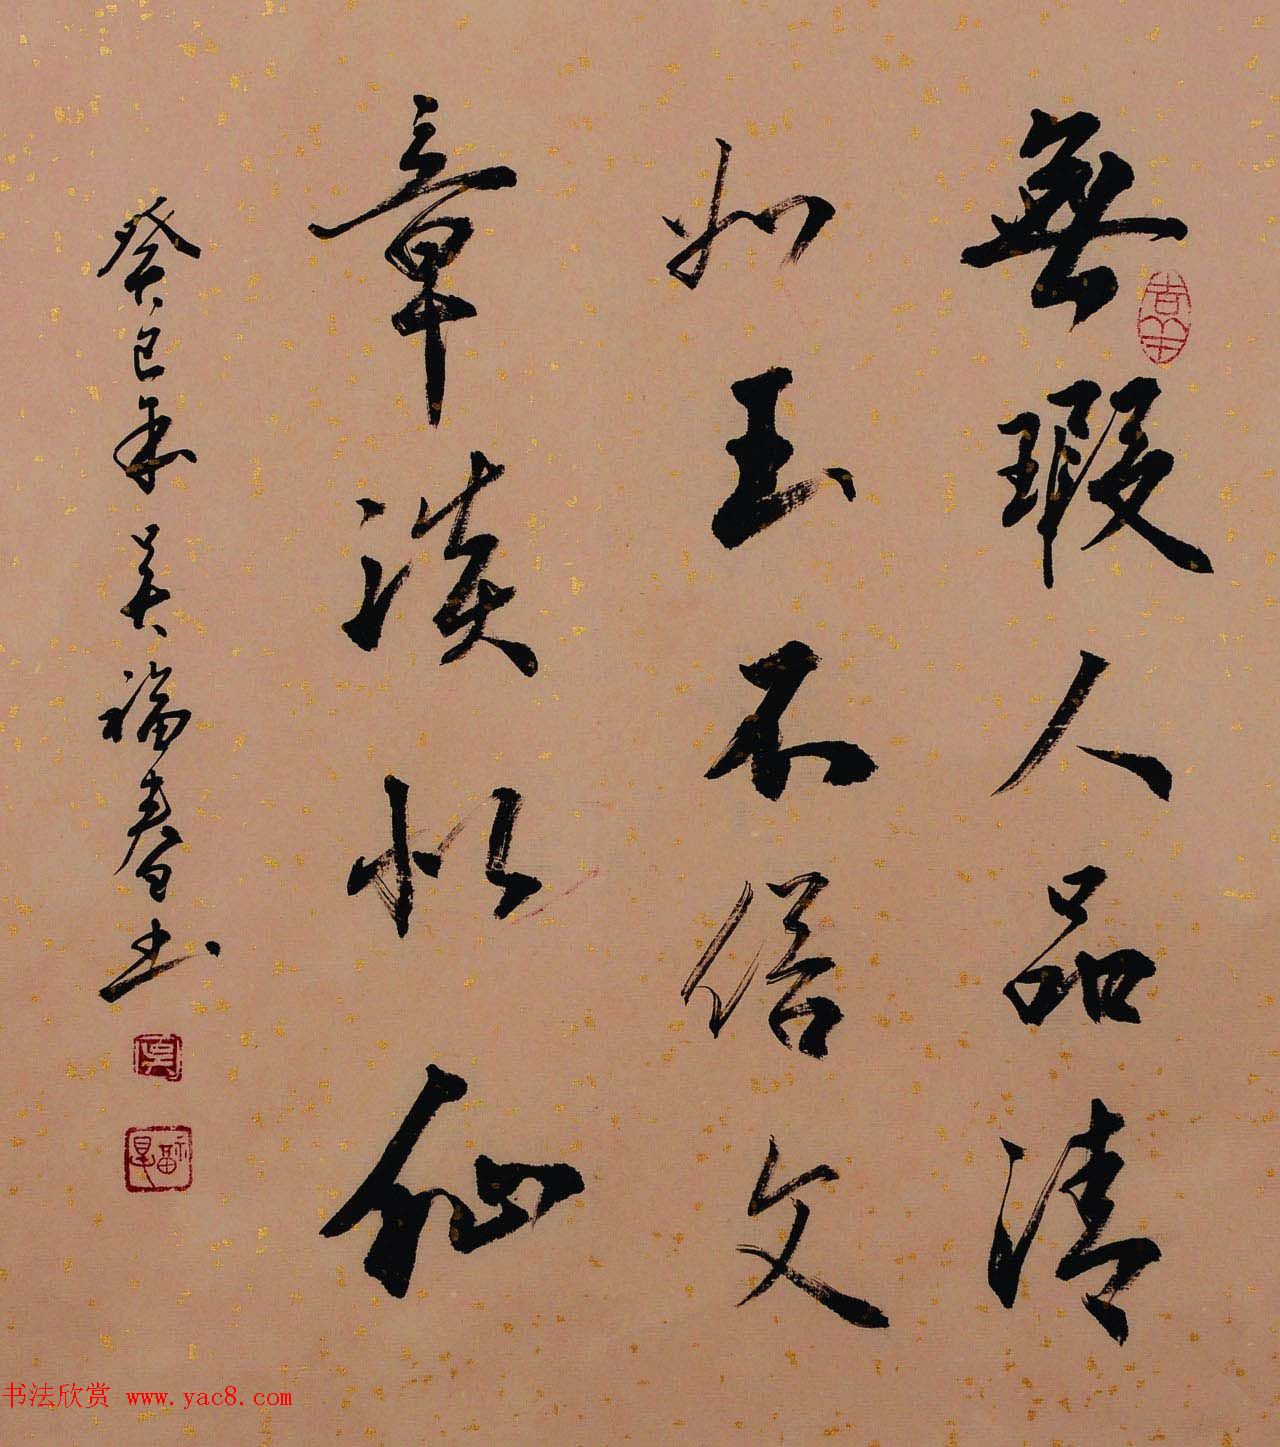 無瑕人品清
如玉不俗文
章淡似仙
癸巳年吴福春书
书法欣赏 www.yac8.com